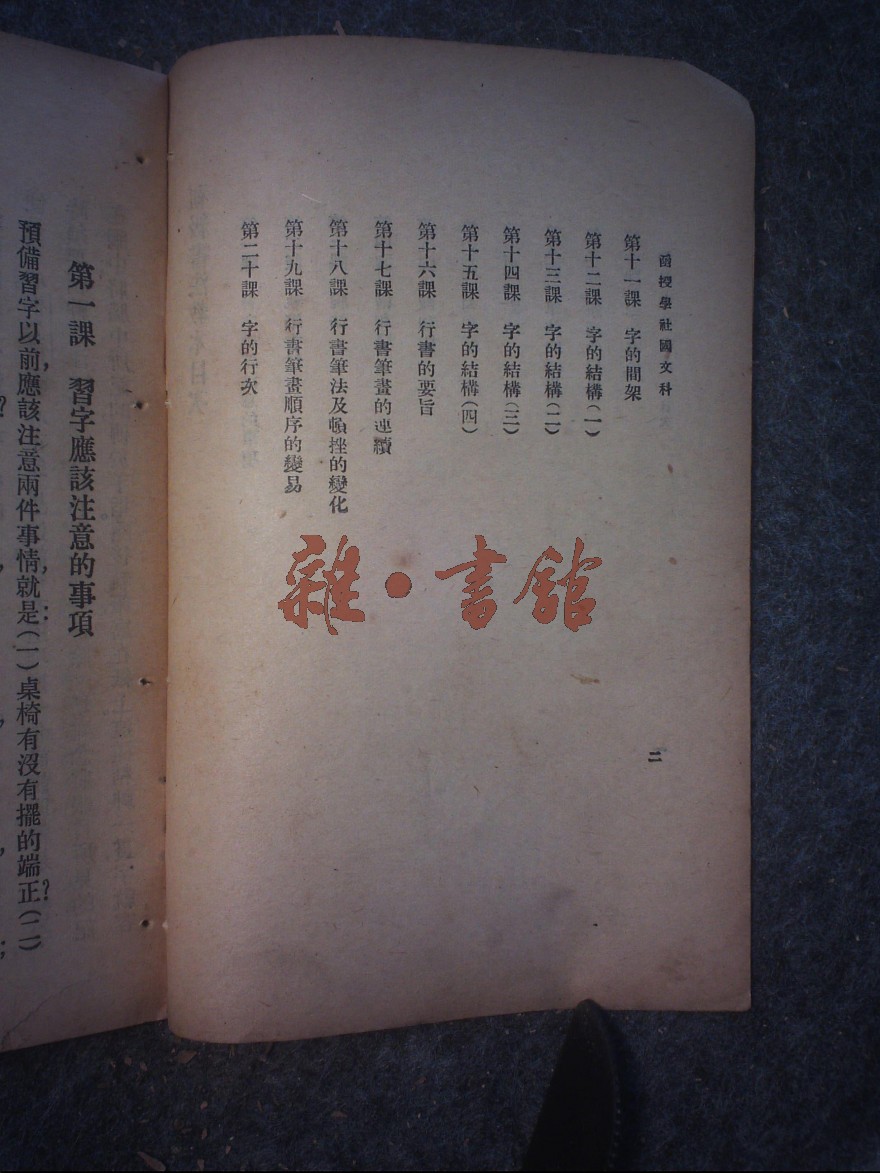 函授學社國文科
第十一課 字的間架
第十二課 字的結構(一)
第十三課 字的結構(二)
第十四課 字的結構(三)
第十五課 字的結構(四)
第十六課 行書的要旨
第十七課 行書筆畫的連續
第十八課 行書筆法及頓挫的變化
第十九課 行書筆畫順序的變易
第二十課 字的行次
二
雜·書館
第一課 習字應該注意的事項
預備習字以前,應該注意兩件事情,就是:(一)桌椅有沒有擺的端正?(二)